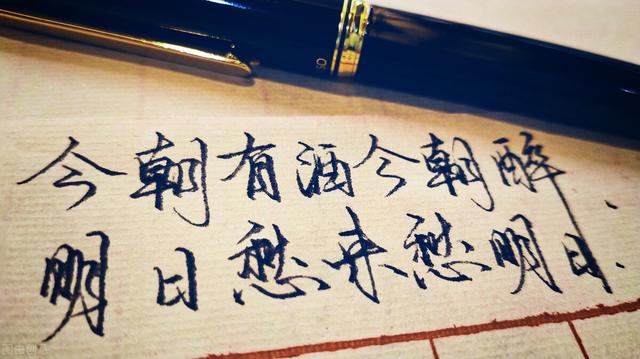 今朝有酒今朝醉、
明日愁来愁明日.